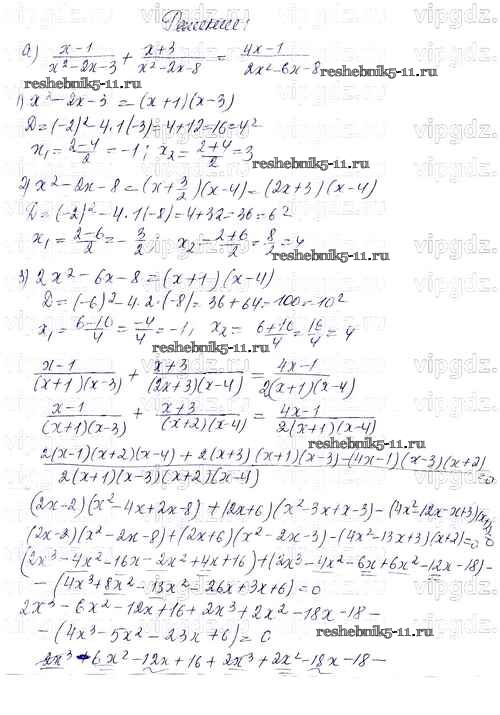 Решение:
а) x-1/x²-2x-3 + x+3/x²-2x-8 = 4x-1/2x²-6x-8
reshebnik5-11.ru
1) x²-2x-3 = (x+1)(x-3)
D=(-2)²-4·1(-3)=4+12=16=4²
x₁=2-4/2=-1; x₂=2+4/2=3
reshebnik5-11.ru
2) x²-2x-8=(x+3/2)(x-4)=(2x+3)(x-4)
D=(-2)²-4·1(-8)=4+32=36=6²
x₁=2-6/2=-3/2; x₂=2+6/2=8/2=4
reshebnik5-11.ru
3) 2x²-6x-8=(x+1)(x-4)
D=(-6)²-4·2·(-8)=36+64=100=10²
x₁=6-10/4=-4/4=-1, x₂=6+10/4=16/4=4
reshebnik5-11.ru
x-1/(x+1)(x-3) + x+3/(2x+3)(x-4) = 4x-1/2(x+1)(x-4)
x-1/(x+1)(x-3) + x+3/(x+2)(x-4) = 4x-1/2(x+1)(x-4)
reshebnik5-11.ru
2(x-1)(x+2)(x-4)+2(x+3)(x+1)(x-3)-(4x-1)(x-3)(x+2)/2(x+1)(x-3)(x+2)(x-4)=0
(2x-2)(x²-4x+2x-8)+(2x+6)(x²-3x+x-3)-(4x²-12x-x+3)(x+2)=0
(2x-2)(x²-2x-8)+(2x+6)(x²-2x-3)-(4x²-13x+3)(x+2)=0
(2x³-4x²-16x-2x²+4x+16)+(2x³-4x²-6x+6x²-12x-18)-
-(4x³+8x²-13x²-26x+3x+6)=0
2x³-6x²-12x+16+2x³+2x²-18x-18-
-(4x³-5x²-23x+6)=0
reshebnik5-11.ru
2x³-6x²-12x+16+2x³+2x²-18x-18-